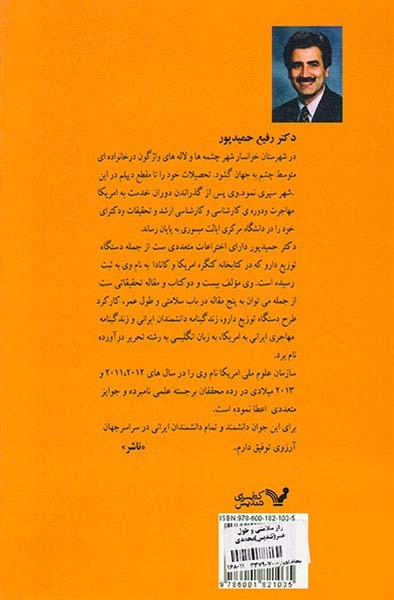 دکتر رفیع حمیدپور
در شهرستان خوانسار شهر چشمه ها و لاله های واژگون درخانواده ای
متوسط چشم به جهان گشود. تحصیلات خود را تا مقطع دیپلم در این
شهر سپری نمود.وی پس از گذراندن دوران خدمت به امریکا
مهاجرت ودوره ی کارشناسی و کارشناسی ارشد و تحقیقات ودکترای
خود را در دانشگاه مرکزی ایالت میسوری به پایان رساند.
دکتر حمیدپور دارای اختراعات متعددی ست از جمله دستگاه
توزیع دارو که در کتابخانه کنگره امریکا و کانادا به نام وی به ثبت
رسیده است. وی مؤلف بیست و دوکتاب و مقاله تحقیقاتی ست
از جمله می توان به پنج مقاله در باب سلامتی و طول عمر، کارکرد
طرح دستگاه توزیع دارو، زندگینامه دانشمندان ایرانی و زندگینامه
مهاجری ایرانی به امریکا، به زبان انگلیسی به رشته تحریر درآورده
نام برد.
سازمان علوم ملی امریکا نام وی را در سال های ۲۰۱۱،۲۰۱۲ و
۲۰۱۳ میلادی در رده محققان برجسته علمی نامبرده و جوایز
متعددی اعطا نموده است.
برای این جوان دانشمند و تمام دانشمندان ایرانی در سراسرجهان
آرزوی توفیق دارم.. «ناشر»
کتابسرای
تندیس
ISBN:978-600-182-103-5
راز سلامتی و طول
عمر(تندیس)محمدی
9786001821035